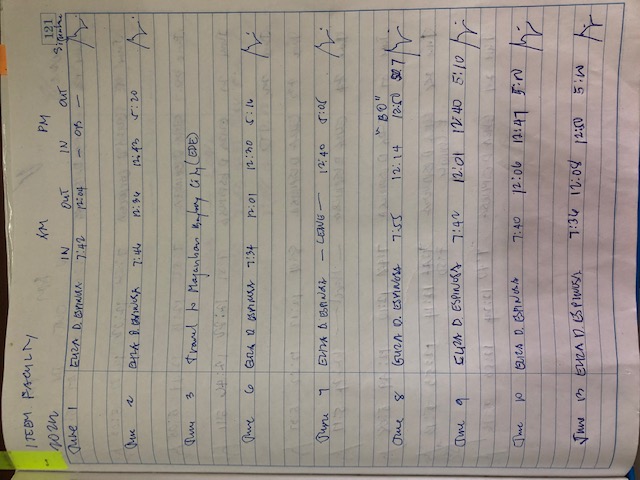 121
ITEEM FACULTY
AM PM
2022 IN OUT IN OUT Signature
June 1 ELIZA D. ESPINOSA 7:42 12:04 - OB -
June 2 ELIZA D. ESPINOSA 7:46 12:36 12:43 5:20
June 3 Travel to City (EDE)
June 6 ELIZA D. ESPINOSA 7:34 12:01 12:30 5:16
June 7 ELIZA D. ESPINOSA - LEAVE - 12:40 5:05
"BO"
June 8 ELIZA D. ESPINOSA 7:55 12:14 12:50 507
June 9 ELIZA D. ESPINOSA 7:42 12:01 12:40 5:10
June 10 ELIZA D. ESPINOSA 7:40 12:06 12:47 5:10
June 13 ELIZA D. ESPINOSA 7:36 12:08 12:50 5:10